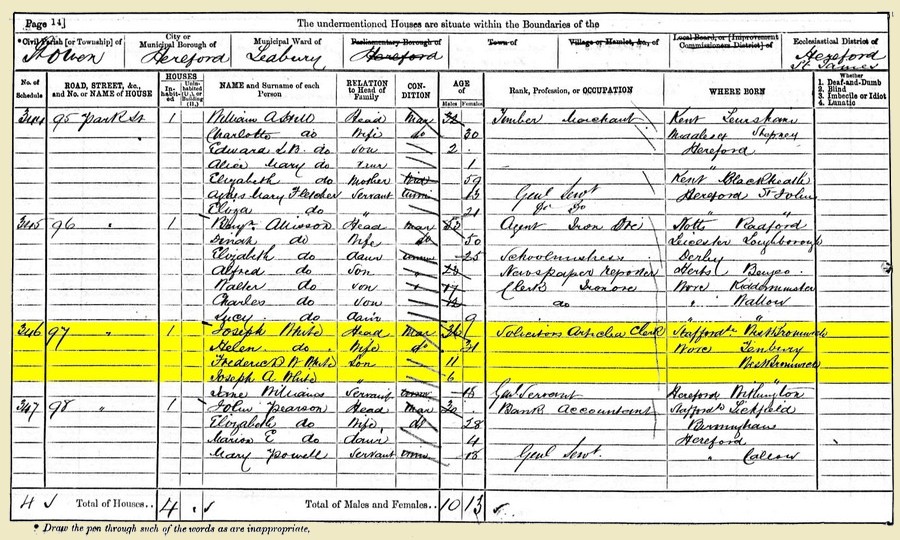 Page 14]
The undermentioned Houses are situate within the Boundaries of the
*Civil Parish [or Township] of
City or Municipal Borough of
Municipal Ward of
Parliamentary Borough of
Town of
Village or Hamlet, &c., of
Local Board, or [Improvement Commissioners District] of
Ecclesiastical District of
St Owen Hereford Leabury Hereford Hereford St James
No. of Schedule
ROAD, STREET, &c., and No. or NAME of HOUSE
HOUSES
In-habit-ed
Unin-habited (U.), or Building (B.)
NAME and Surname of each Person
RELATION to Head of Family
CON-DITION
AGE of
Males Females
Rank, Profession, or OCCUPATION
WHERE BORN
Whether
1. Deaf-and-Dumb
2. Blind
3. Imbecile or Idiot
4. Lunatic
344 95 Park St 1 William A Head Mar 32 Timber Merchant Kent
Charlotte do Wife do 30 Middlesex Stepney
Edward S.B. do Son 2 Hereford
Alice Mary do 1 "
Elizabeth do Mother 59 Kent Blackheath
Mary Fletcher Servant 13 Genl Servt Hereford St John
Eliza do " 21 Do Do "
345 96 " 1 Benjn Head Mar 53 Agent Iron Notts Radford
Dinah do Wife do 50 Leicester Loughborough
Elizabeth do daur 25 Schoolmistress Derby
Alfred do Son Newspaper reporter Herts
Walter do son 17 Clerk Worc Kidderminster
Charles do Son do "
Lucy do daur 9 " "
346 97 " 1 Joseph White Head Mar 36 Solicitors Articled Clerk Staffords Westbromwich
Helen do Wife do 31 Worc Tenbury
Frederick W White Son 11 Westbromwich
Joseph A White " 6 "
Jane Williams Servant 18 Genl Servant Hereford Withington
347 98 " 1 John Pearson Head Mar 30 Bank Accountant Staffords Lichfield
Elizabeth do Wife do 28 Birmingham
Marion E do daur 4 Hereford
Mary Powell Servant 18 Genl Servt. "
4 Total of Houses.. 4 Total of Males and Females.. 10 13
* Draw the pen through such of the words as are inappropriate.